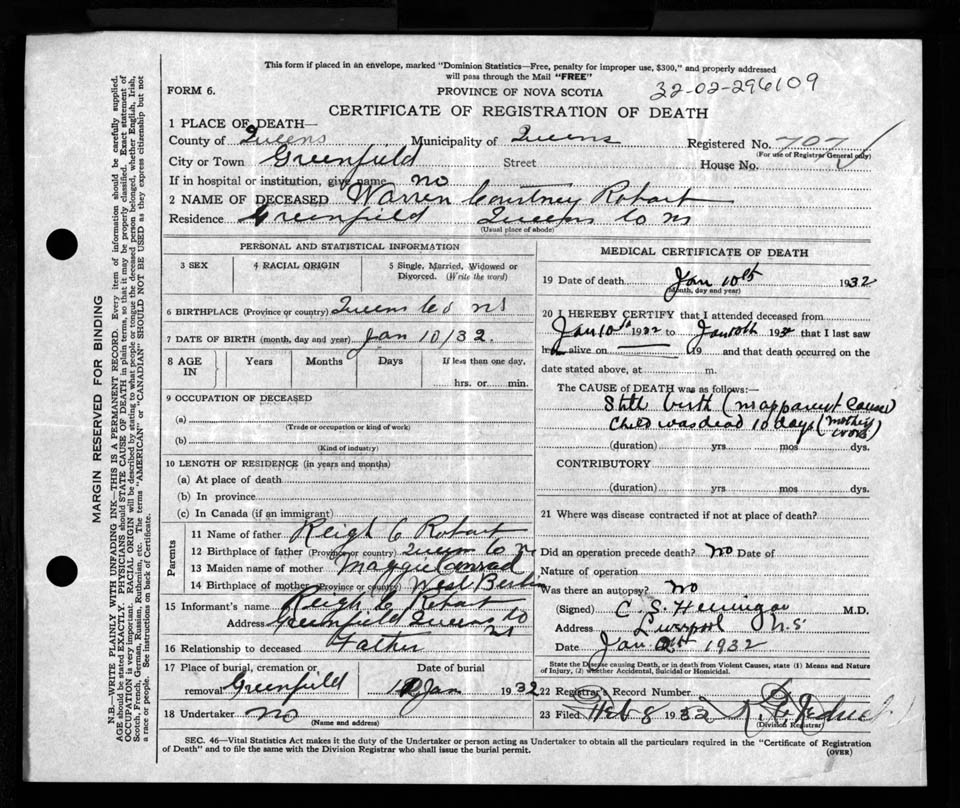 This form if placed in an envelope, marked "Dominion Statistics—Free, penalty for improper use, $300," and properly addressed
will pass through the Mail "FREE"
FORM 6.
PROVINCE OF NOVA SCOTIA
32-02-296109
CERTIFICATE OF REGISTRATION OF DEATH
1 PLACE OF DEATH—
County of Queens Municipality of Queens Registered No. 707
(For use of Registrar General only)
City or Town Greenfield Street House No.
If in hospital or institution, give name no
2 NAME OF DECEASED Warren Courtney Robart
Residence Greenfield Queens Co NS
(Usual place of abode)
PERSONAL AND STATISTICAL INFORMATION
3 SEX 4 RACIAL ORIGIN 5 Single, Married, Widowed or Divorced. (Write the word)
6 BIRTHPLACE (Province or country) Queens Co NS
7 DATE OF BIRTH (month, day and year) Jan 10/32.
8 AGE IN Years Months Days If less than one day,
hrs. or min.
9 OCCUPATION OF DECEASED
(a)
(Trade or occupation or kind of work)
(b)
(Kind of industry)
10 LENGTH OF RESIDENCE (in years and months)
(a) At place of death
(b) In province
(c) In Canada (if an immigrant)
Parents
11 Name of father Reigh C Robart
12 Birthplace of father (Province or country) Queens Co NS
13 Maiden name of mother Maggie Conrad
14 Birthplace of mother (Province or country) West Berlin
15 Informant's name Reigh C Robart
Address Greenfield Queens Co NS
16 Relationship to deceased Father
17 Place of burial, cremation or Date of burial
removal Greenfield Jan 1932
18 Undertaker no
(Name and address)
MEDICAL CERTIFICATE OF DEATH
19 Date of death Jan 10th 1932
(Month, day and year)
20 I HEREBY CERTIFY that I attended deceased from
Jan 10th 1932 to Jan 10th 193 that I last saw
h alive on 19 and that death occurred on the
date stated above, at m.
The CAUSE OF DEATH was as follows:—
Still birth (no apparent cause)
Child was dead 10 days (mother's
(duration) yrs mos dys.
CONTRIBUTORY
(duration) yrs mos dys.
21 Where was disease contracted if not at place of death?
Did an operation precede death? no Date of
Nature of operation
Was there an autopsy? no
(Signed) C. S. M.D.
Address Liverpool N.S
Date Jan 1932
State the Disease causing Death, or in death from Violent Causes, state (1) Means and Nature
of Injury, (2) whether Accidental, Suicidal or Homicidal.
22 Registrar's Record Number
23 Filed Feb 8 1932
(Division Registrar)
SEC. 46—Vital Statistics Act makes it the duty of the Undertaker or person acting as Undertaker to obtain all the particulars required in the "Certificate of Registration
of Death" and to file the same with the Division Registrar who shall issue the burial permit.
(OVER)
MARGIN RESERVED FOR BINDING
N.B.—WRITE PLAINLY WITH UNFADING INK—THIS IS A PERMANENT RECORD. Every item of information should be carefully supplied.
AGE should be stated EXACTLY. PHYSICIANS should STATE CAUSE OF DEATH in plain terms, so that it may be properly classified. Exact statement of
OCCUPATION is very important. RACIAL ORIGIN will be described by stating to what people or tongue the deceased person belonged, whether English, Irish,
Scotch, French, German, Russian, Ruthenian, etc. The terms "AMERICAN" or "CANADIAN" SHOULD NOT BE USED as they express citizenship but not
a race or people. See instructions on back of Certificate.